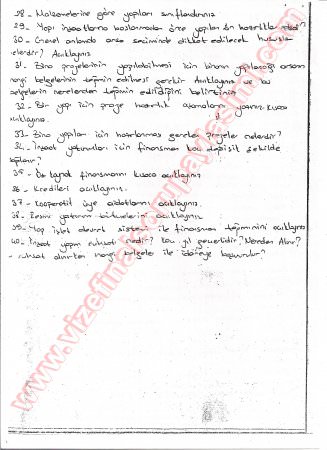 28 - Malzemelerine göre yapıları sınıflandırınız
29 - Yapı inşaatlarına başlamadan önce yapılan ön hazırlıklar
30 - Genel anlamda arsa seçiminde dikkat edilecek hususlar
nelerdir? Açıklayınız
31. Bina projelerinin yapılabilmesi için binanın yapılacağı arsanın
hangi belgelerinin temin edilmesi gerekir Açıklayınız ve bu
belgelerin nerelerden temin edildiğini belirtiniz
32. Bir yapı için proje hazırlık aşamalarını yazınız kısaca
açıklayınız.
33. Bina yapıları için hazırlanması gereken projeler nelerdir?
34. İnşaat yatırımları için finansman kaç değişik şekilde
sağlanır?
35 - Öz kaynak finansmanı kısaca açıklayınız
36 - Kredileri açıklayınız.
37 - Kooperatif üye aidatlarını açıklayınız.
38 - Resmi yatırım bütçelerini açıklayınız
39. Yap işlet devret sistemi ile finansman teminini açıklayınız
40. İnşaat yapım ruhsatı nedir? Kaç yıl geçerlidir? Nereden Alınır?
- ruhsat alınırken hangi belgeler ile idareye başvurulur?
www.vizefinalcalismaposasi.com